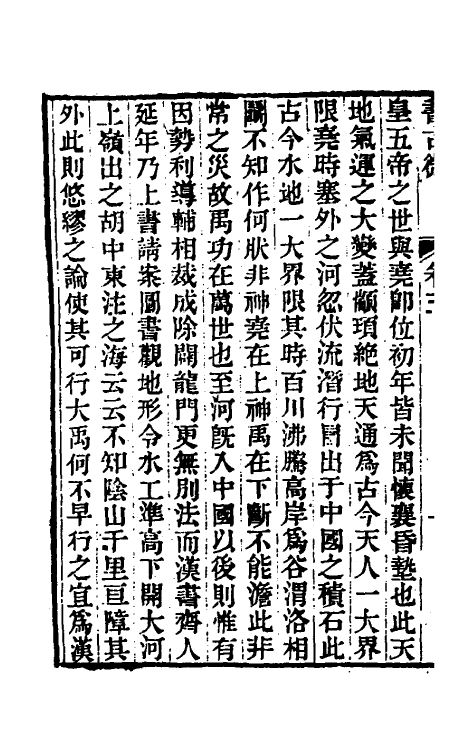 書古微
卷三
皇五帝之世與堯卽位初年皆未聞懷襄昏墊也此天
地氣運之大變蓋顓頊絶地天通爲古今天人一大界
限堯時塞外之河忽伏流潛行冒出于中國之積石此
古今水地一大界限其時百川沸騰高岸爲谷渭洛相
鬭不知作何狀非神堯在上神禹在下斷不能澹此非
常之災故禹功在萬世也至河旣入中國以後則惟有
因勢利導輔相裁成除闢龍門更無別法而漢書齊人
延年乃上書請案圖書觀地形令水工準高下開大河
上嶺出之胡中東注之海云云不知陰山千里亘障其
外此則悠繆之論使其可行大禹何不早行之宜爲漢